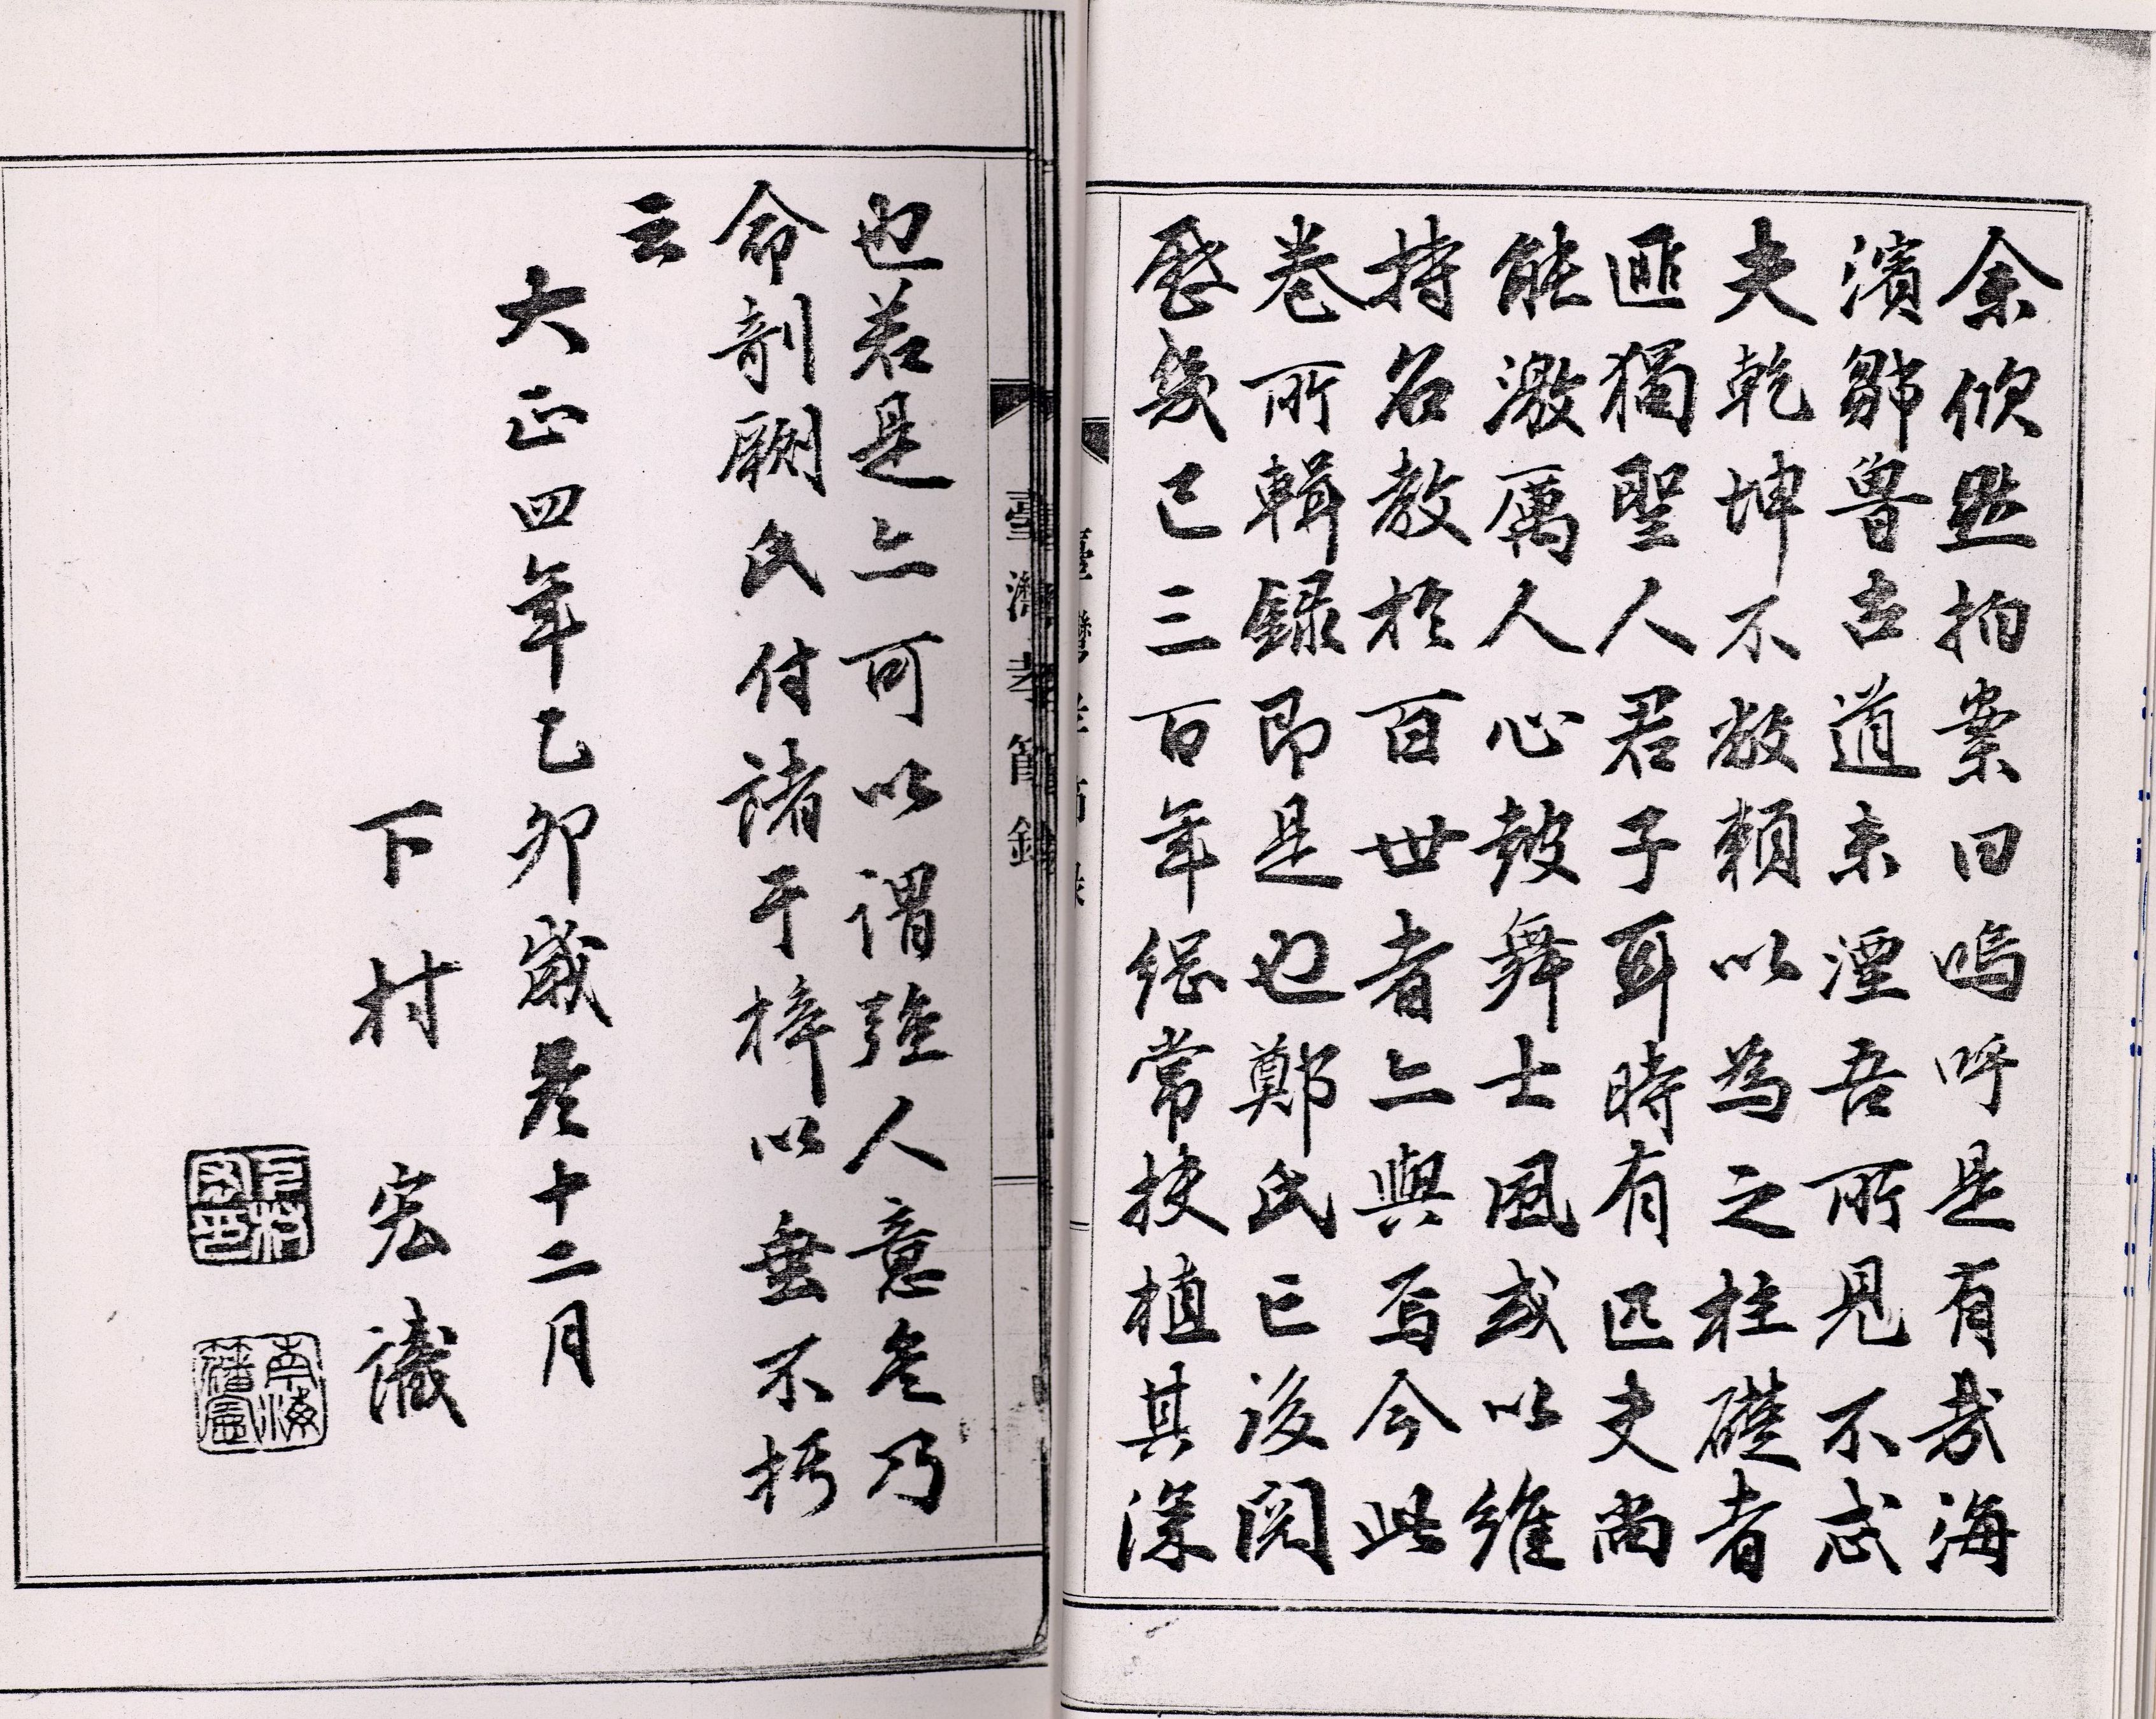 余倏然拍案曰嗚呼是有哉海
濱鄒魯古道未湮吾所見不忒
夫乾坤不敝賴以為之柱礎者
匪獨聖人君子耳時有匹夫尚
能激厲人心鼓舞士風或以維
持名教於百世者亦與焉今此
卷所輯錄即是也鄭氏亡後閱
歷幾已三百年綱常扶植其深
臺灣孝節錄
也若是亦可以謂強人意矣乃
命剞劂氏付諸于梓以垂不朽
云
大正四年乙卯歲十二月
下村宏識
下村宏印
南海藩宣